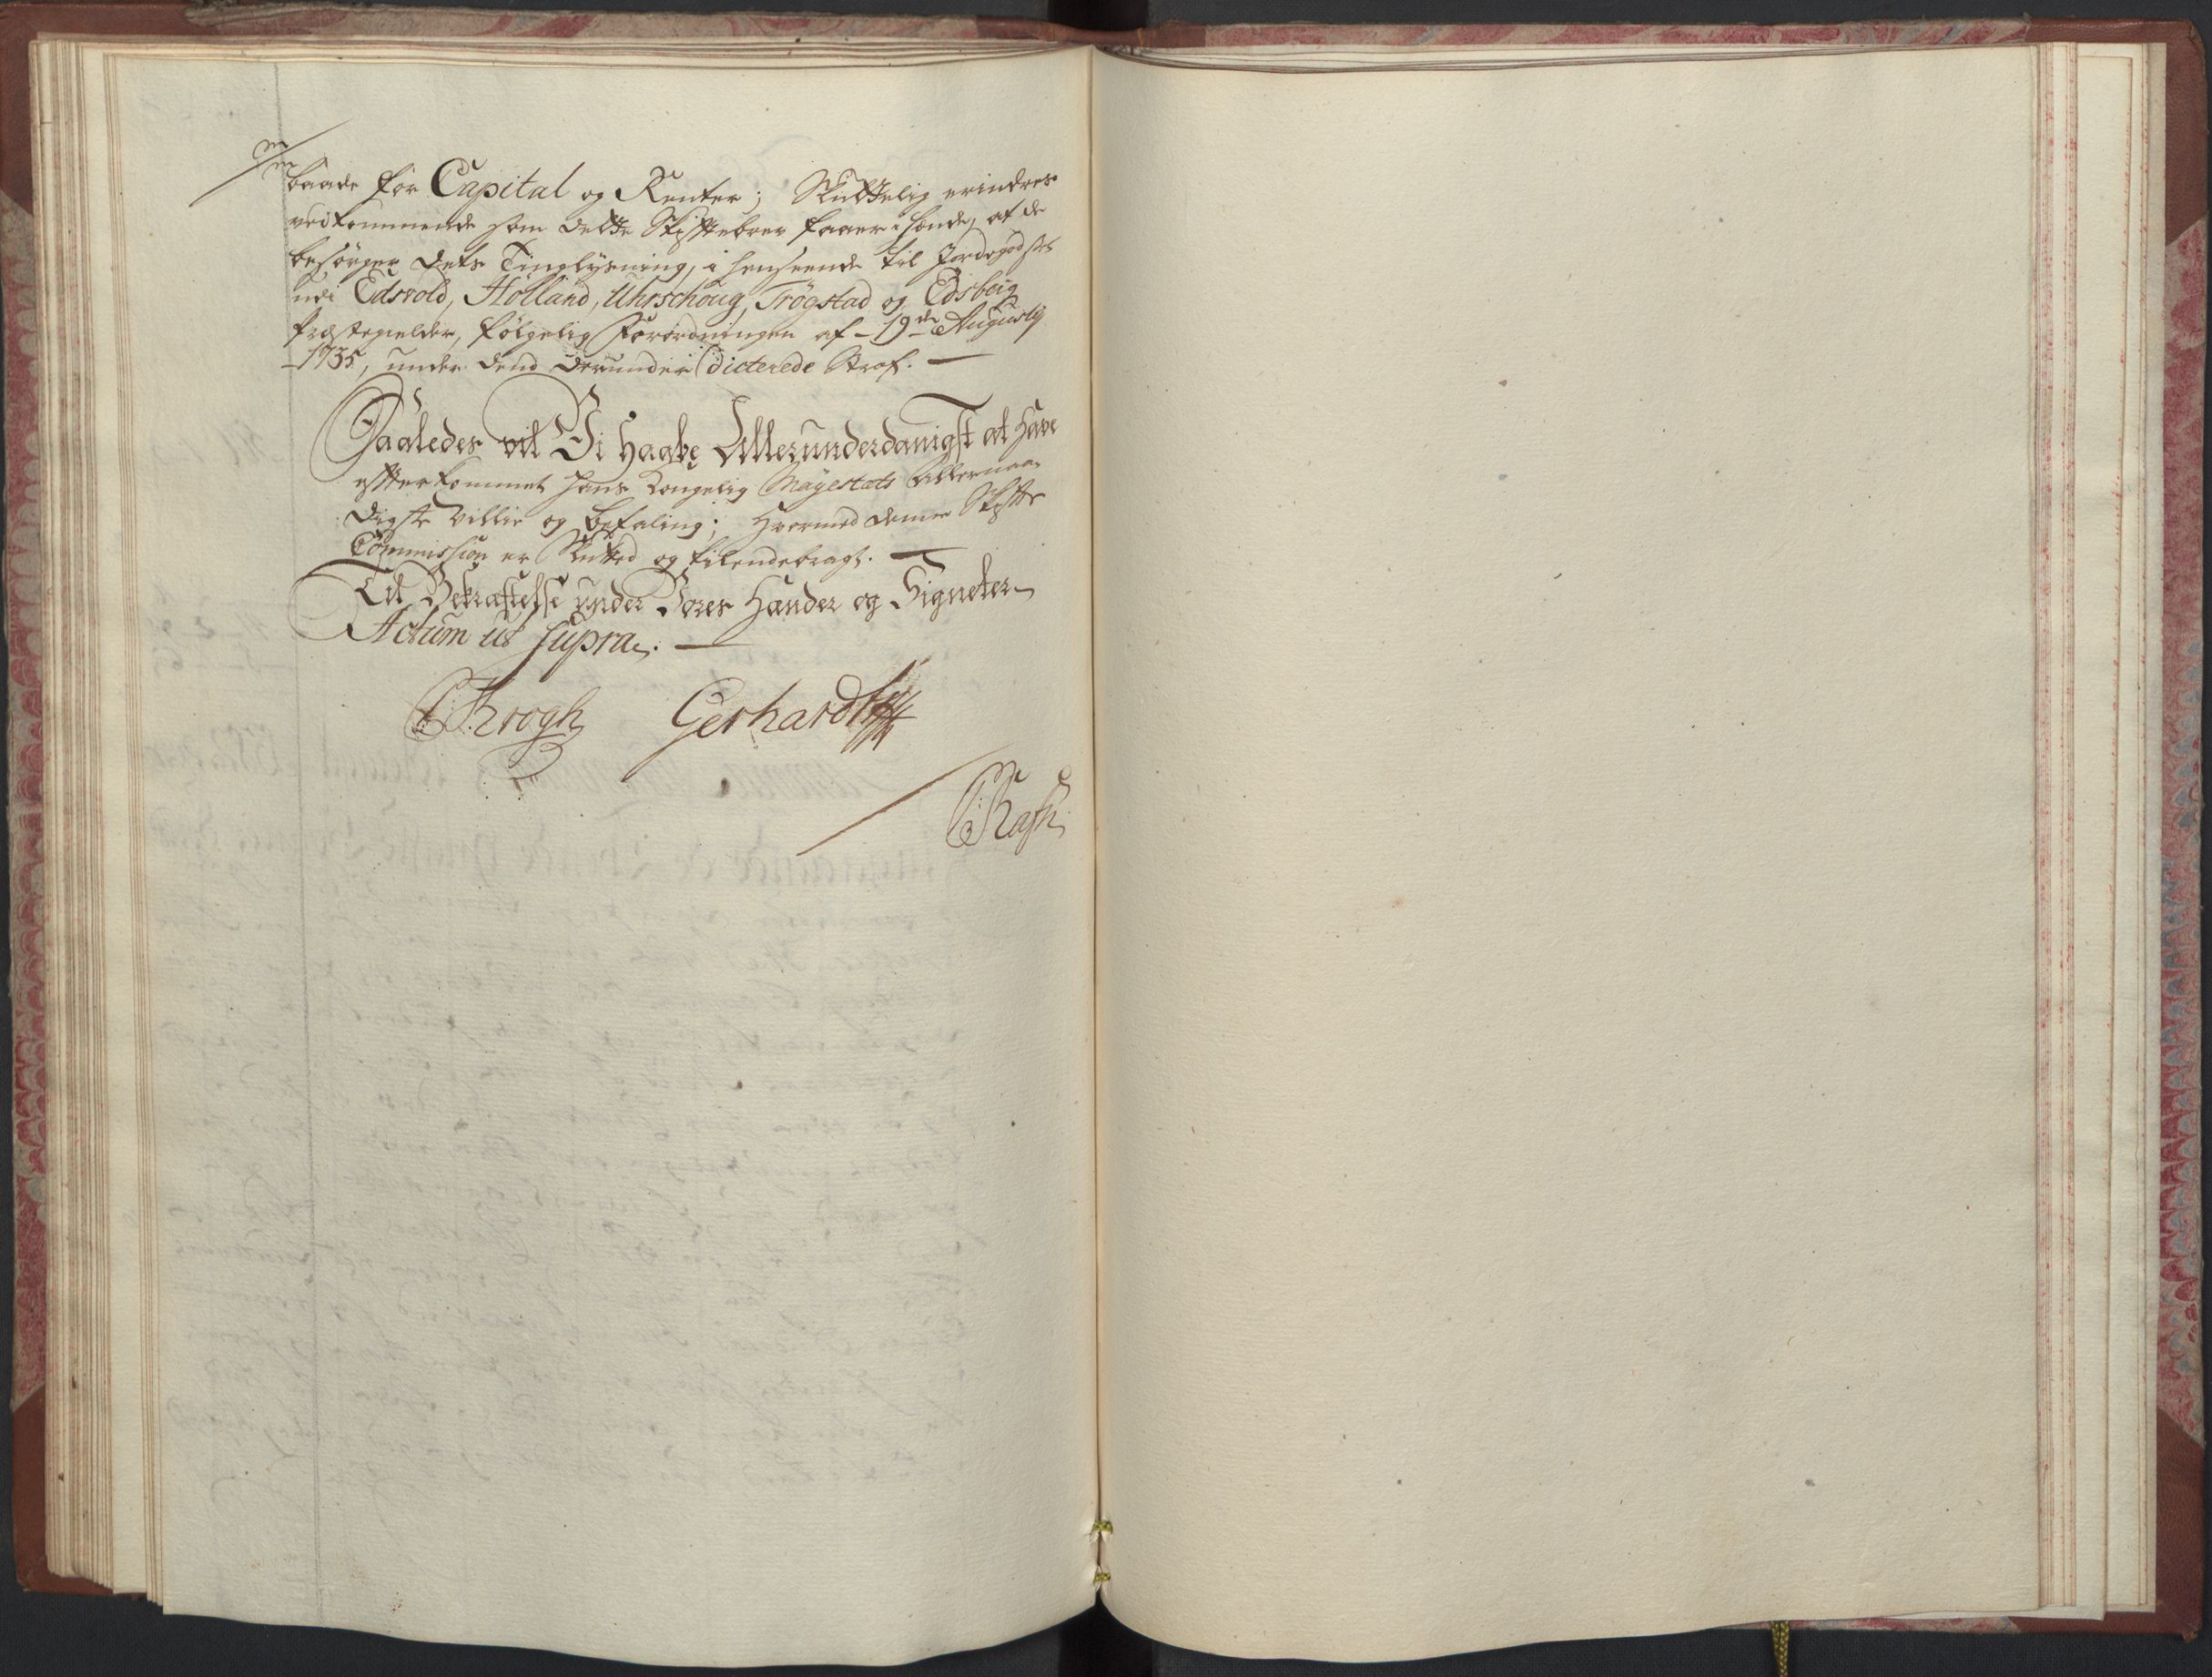 baade for Capital og Renter; Sluttelig erindres
vedkommende som dette Skiftebrev faaer i hænde, at de
besörger dets Tinglysning, i henseende til Jordegodset
udi Edsvold, Hölland, Uhrschoug, Trögstad og Edsberg
Præstegielder, fölgelig Forordningen af 19de Augusty
1735, under dend derunder dicterede Straf. —
Saaledes vil Vi haabe Allerunderdanigst at have
effterkommet Hans Kongelig Mayestæts Allernaa-
digste Villie og befaling; Hvormed denne Skifte
Commission er Slutted og tilendebragt. —
Til Bekræftelse under Vores Hænder og Signeter
Actum ut supra. —
Krogh Gerhardt
Rasch